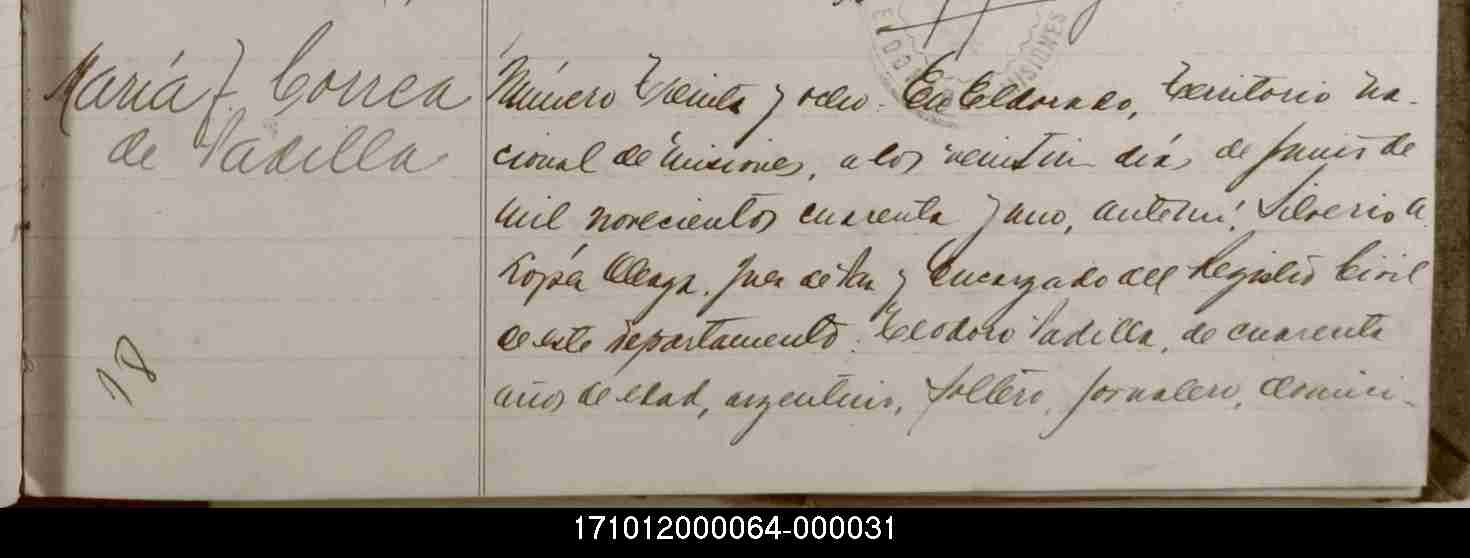 María F. Correa
de Padilla
18
Número treinta y ocho. En Eldorado, territorio na-
cional de Misiones, a los veintiun días de Junio de
mil novecientos cuarenta y uno, ante mí: Silverio A.
López Aleaga, Juez de Paz y Encargado del Registro Civil
de este Departamento: Teodoro Padilla, de cuarenta
años de edad, argentino, soltero, jornalero, domici-
171012000064-000031